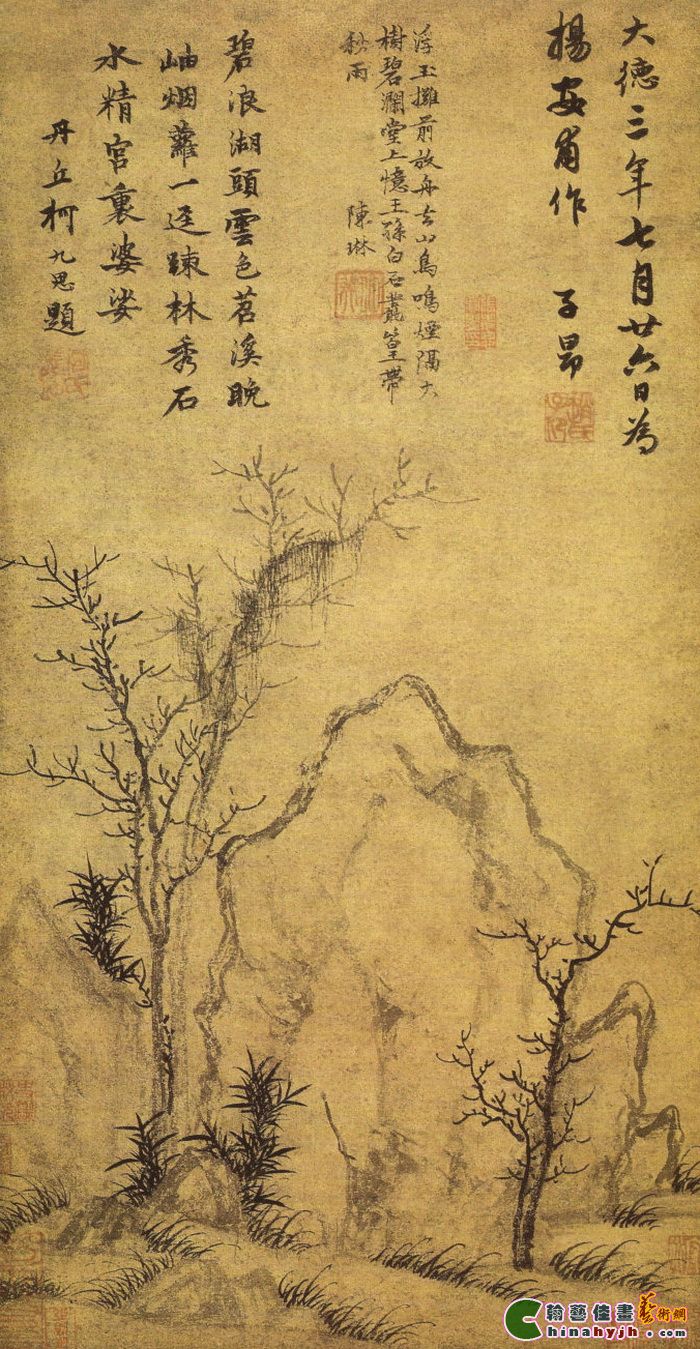 大德三年七月廿六日為
楊安甫作 子昂
浮玉灘前放舟去山鳥鳴煙隔大
樹碧瀾堂上憶王孫白石叢篁帶
秋雨 陳琳
碧浪湖頭雲色苕溪晚
岫烟蘿一逕疎林秀石
水精宮裏婆娑
丹丘柯九思題
翰藝佳畫藝術網
Chinahyjh.com